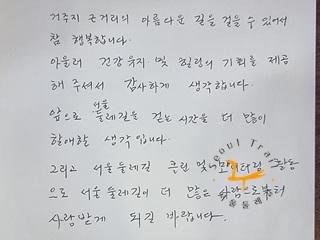 거주지 근거리의 아름다운 길을 걸을 수 있어서
참 행복합니다.
아울러 건강유지 및 힐링의 기회를 제공
해 주셔서 감사하게 생각합니다.
앞으로 서울 둘레길을 걷는 시간을 더 많이
할애할 생각입니다.
그리고 서울둘레길 클린 및 모니터링 활동
으로 서울 둘레길이 더 많은 사람으로부터
사랑받게 되길 바랍니다.
Seoul Trail
서울둘레길